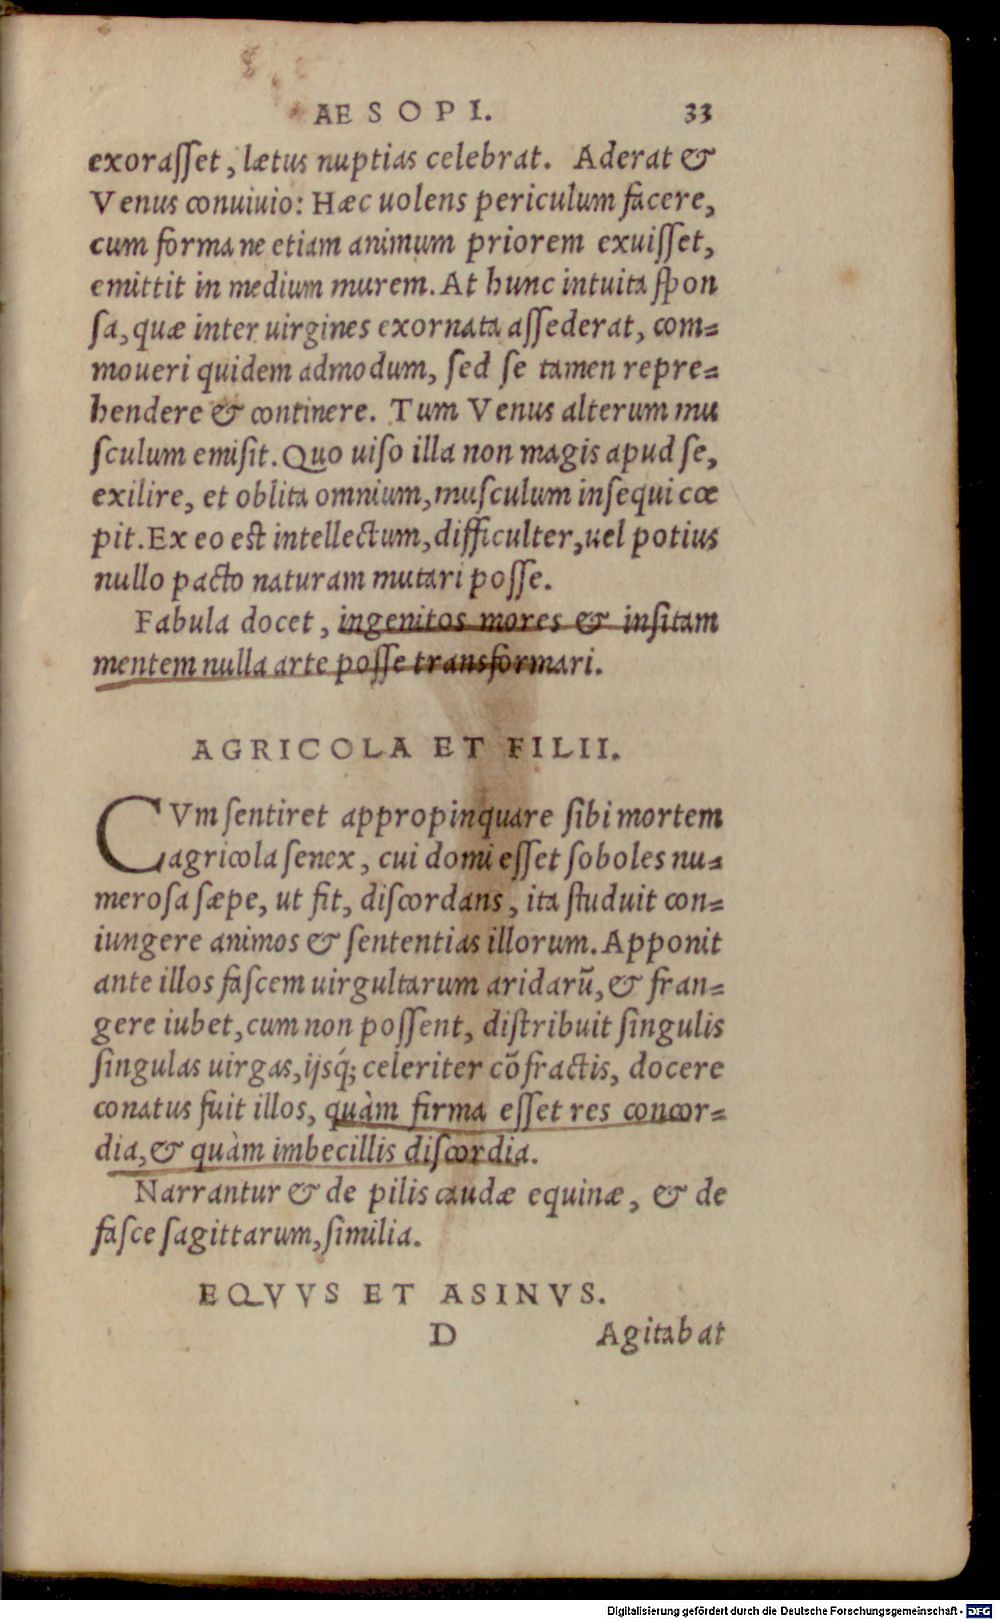 AESOPI. 33
exorasſet, lætus nuptias celebrat. Aderat &
Venus conuiuio: Hæc uolens periculum facere,
cum forma ne etiam animum priorem exuiſſet,
emittit in medium murem. At hunc intuita ſpon
ſa, quæ inter uirgines exornata aſſederat, com=
moueri quidem admodum, ſed ſe tamen repre=
hendere & continere. Tum Venus alterum mu
ſculum emiſit. Quo uiſo illa non magis apud ſe,
exilire, et oblita omnium, muſculum inſequi cœ
pit. Ex eo est intellectum, difficulter, uel potius
nullo pacto naturam mutari poſſe.
Fabula docet, ingenitos mores & inſitam
mentem nulla arte poſſe transformari.
AGRICOLA ET FILII.
CVm ſentiret appropinquare ſibi mortem
agricola ſenex, cui domi eſſet ſoboles nu=
meroſa ſæpe, ut fit, diſcordans, ita ſtuduit con=
iungere animos & ſententias illorum. Apponit
ante illos faſcem uirgultarum aridarũ, & fran=
gere iubet, cum non poſſent, diſtribuit ſingulis
ſingulas uirgas, ijsq́; celeriter cõfractis, docere
conatus fuit illos, quàm firma eſſet res concor=
dia, & quàm imbecillis diſcordia.
Narrantur & de pilis caudæ equinæ, & de
faſce ſagittarum, ſimilia.
EQVVS ET ASINVS.
D Agitabat
Digitalisierung gefördert durch die Deutsche Forschungsgemeinschaft - DFG